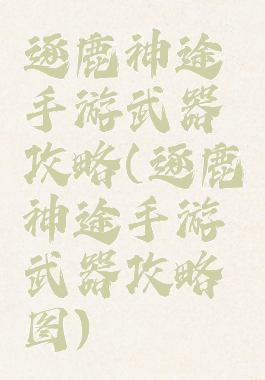 逐鹿神途
手游武器
攻略(逐鹿
神途手游
武器攻略
图)